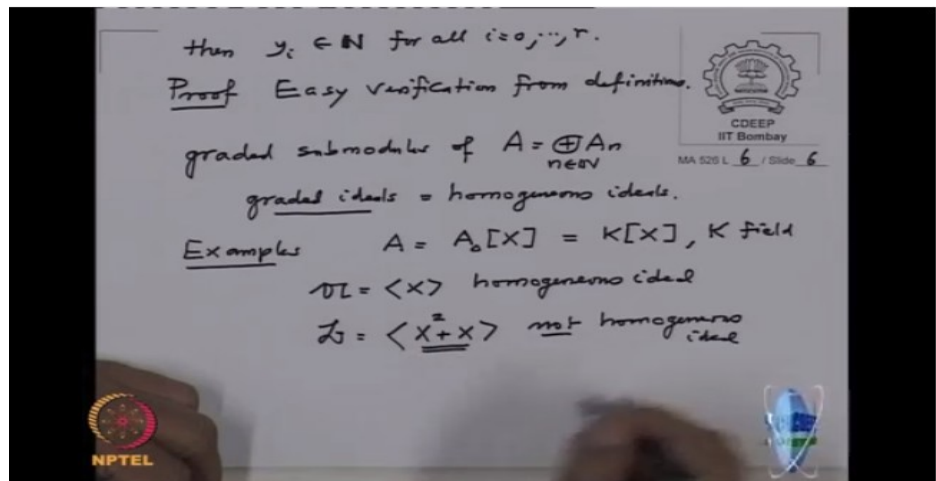 then y_i ∈ N for all i=0,⋯,r.
Proof Easy verification from definitions.
CDEEP
IIT Bombay
MA 526 L 6 / Slide 6
graded submodules of A = ⊕ A_n
n∈ℕ
graded ideals = homogeneous ideals.
Examples A = A_0[X] = K[X], K field
𝔄 = <X> homogeneous ideal
𝔅 = <X²+X> not homogeneous
ideal
NPTEL